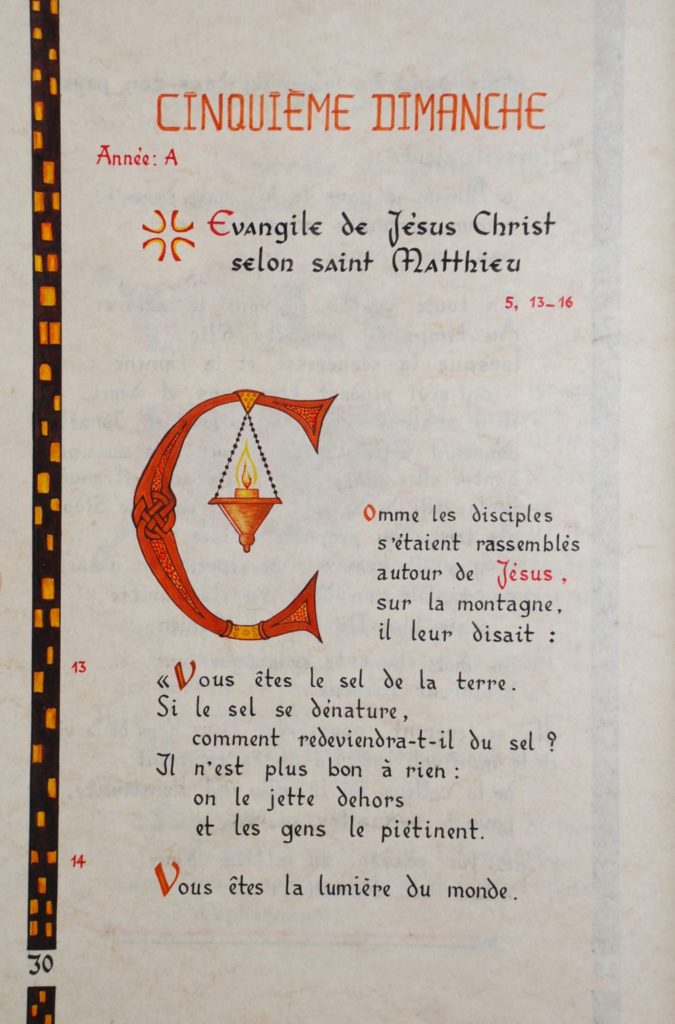 CINQUIÈME DIMANCHE
Année: A
Evangile de Jésus Christ
selon saint Matthieu
5, 13-16
Comme les disciples
s'étaient rassemblés
autour de Jésus,
sur la montagne,
il leur disait :
13
« Vous êtes le sel de la terre.
Si le sel se dénature,
comment redeviendra-t-il du sel ?
Il n'est plus bon à rien :
on le jette dehors
et les gens le piétinent.
14
Vous êtes la lumière du monde.
30